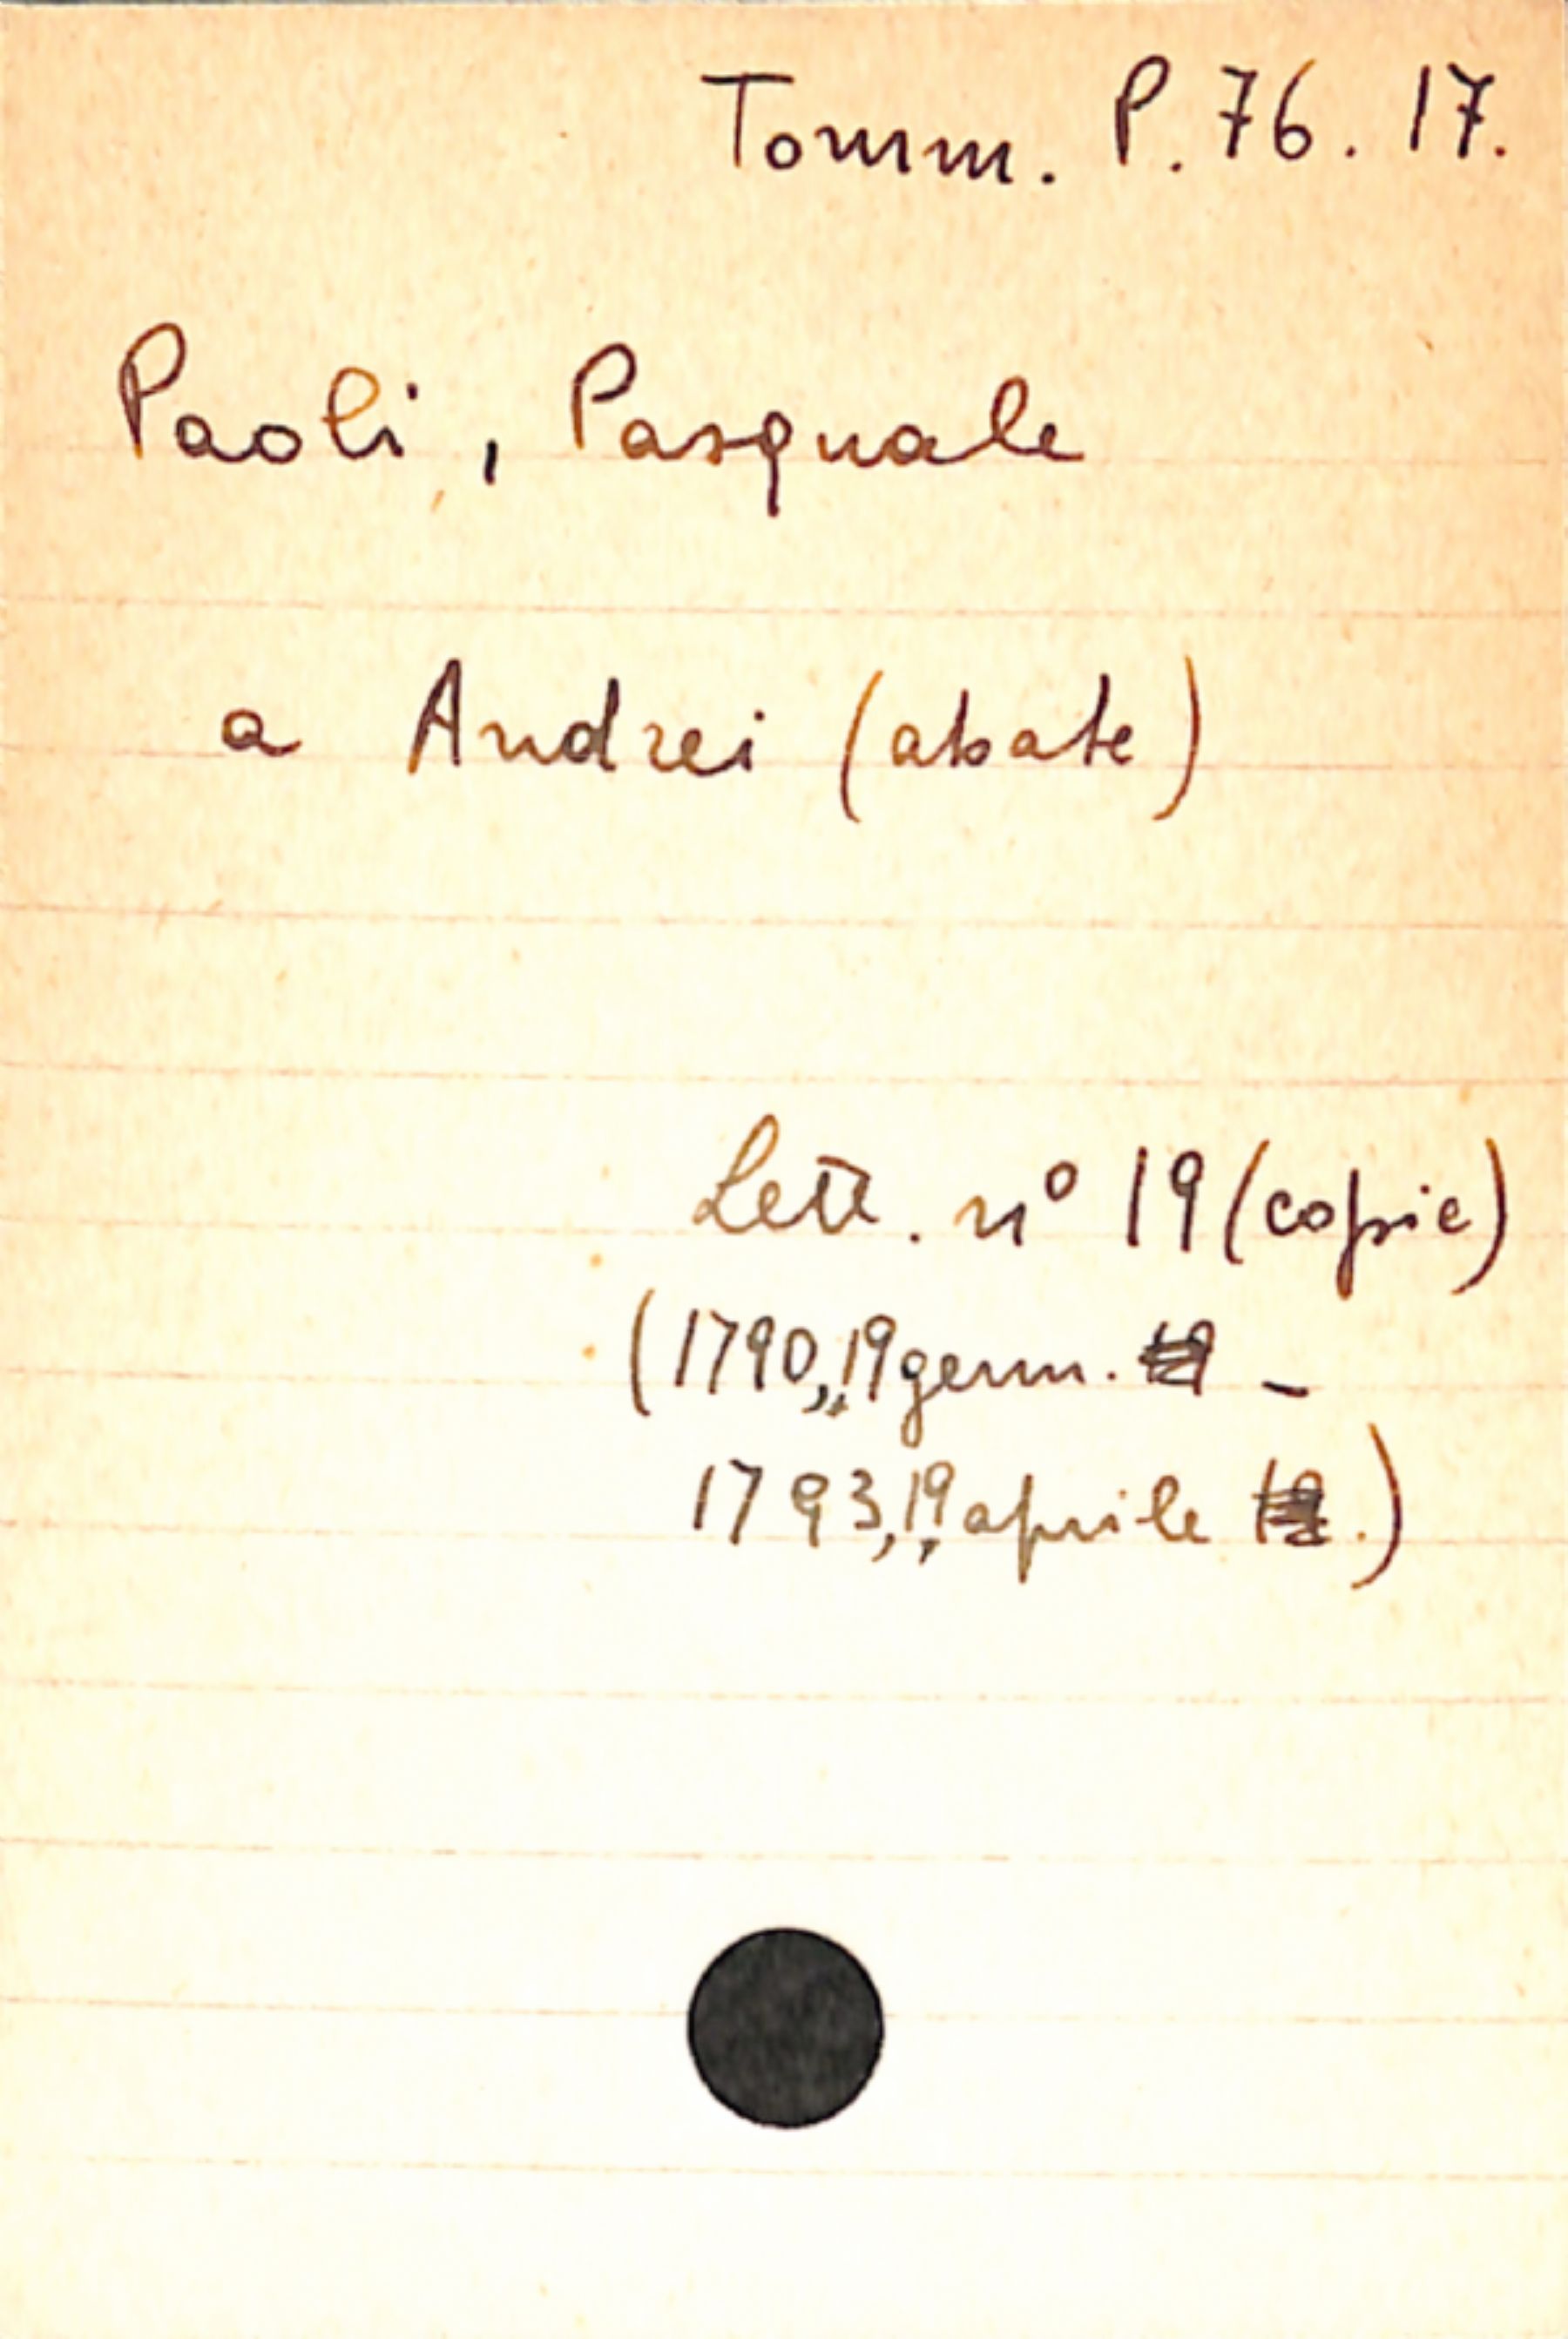 Tomm. P. 76. 17.
Paoli, Pasquale
a Andrei (abate)
Lett. nº 19 (copie)
(1790, 19 germ. -
1793, 19 aprile .)